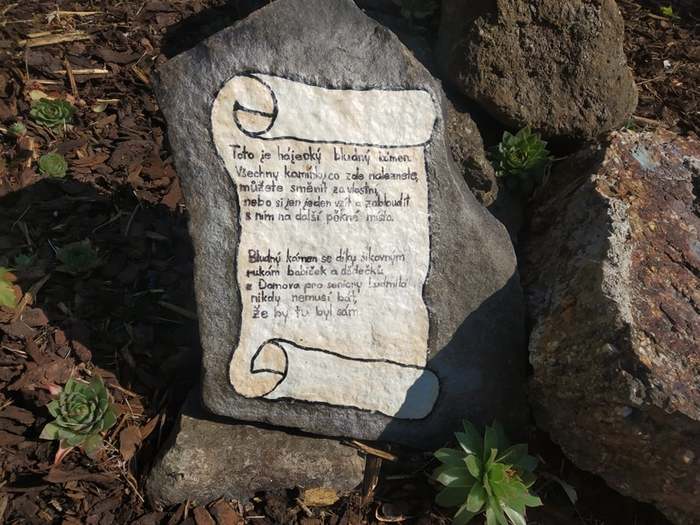 Toto je hájecký bludný kámen.
Všechny kamínky, co zde naleznete,
můžete směnit za vlastní,
nebo si jen jeden vzít a zabloudit
s ním na další pěkná místa.
Bludný kámen se díky šikovným
rukám babiček a dědečků
z Domova pro seniory Ludmila
nikdy nemusí bát,
že by tu byl sám.